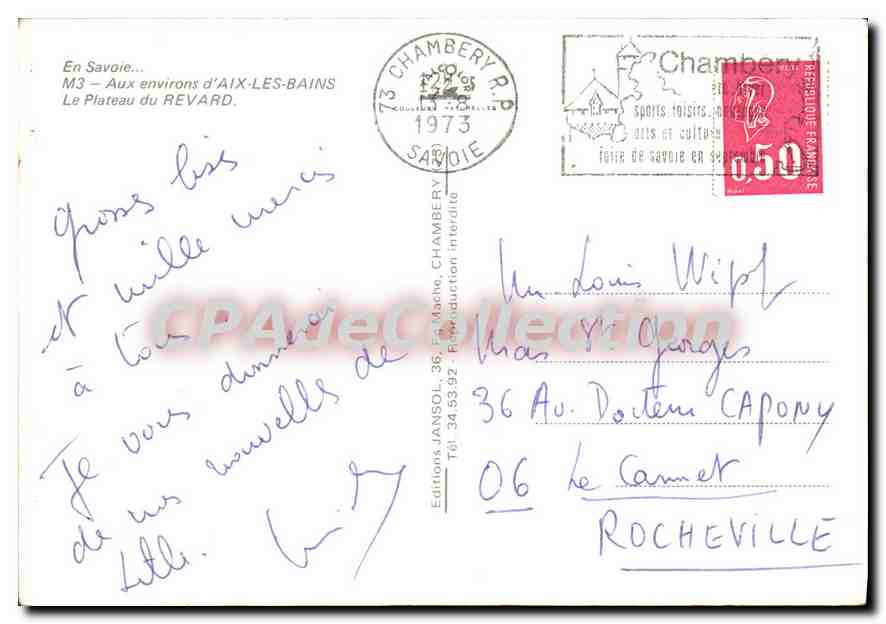 En Savoie...
M3 — Aux environs d'AIX-LES-BAINS
Le Plateau du REVARD.
73 CHAMBERY R.P.
1973
SAVOIE
Chambery
sports, loisirs,
arts et culture
foire de savoie en septembre
REPUBLIQUE FRANÇAISE
0,50
Grosses bises
et mille mercis
à tous.
Je vous donnerai
de mes nouvelles de
Editions JANSOL, 36, Fg Mache, CHAMBERY
Tél. 34.53.92 - Reproduction interdite
CPAdeCollection
Louis Wipf
Mas St Georges
36 Av. Docteur CAPONY
06 Le Cannet
ROCHEVILLE